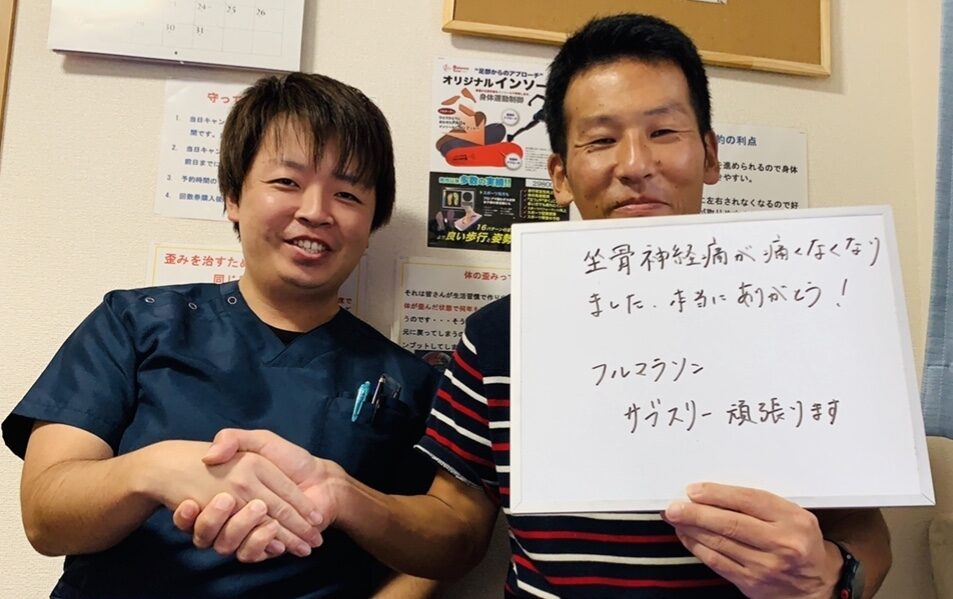 23
24
25
26
29
30
31
守って
1. 当日キャン
間です。
2. 当日キャン
前日まで
3. 予約時間の
4. 回数券購入後
歪みを治すため
同じ
"足部からのアプローチ"
オリジナルインソー
身体運動制御
多数の実績!!
16パターンの
良い歩行と姿勢
体の歪みっ
それは皆さんが生活習慣で作り
体が歪んだ状態で何年も
うのです・・・そう
元に戻ってしまう
ンプットしてしま
約の利点
を進められるので身体
やすい。
に左右されなくなるので好
坐骨神経痛が痛くなくなり
ました、本当にありがとう!
フルマラソン
サブスリー頑張ります